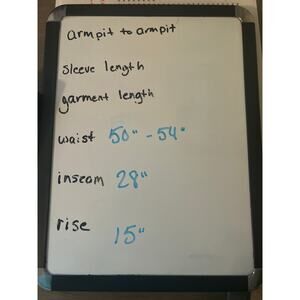 armpit to armpit
sleeve length
garment length
waist 50" - 54"
inseam 28"
rise 15"